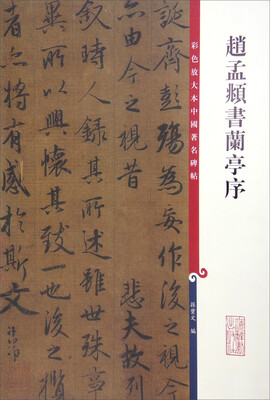 趙孟頫書蘭亭序
彩色放大本中國著名碑帖
孫寶文 編
誕齊彭殤為妄作後之
由今之視昔 悲夫故列
叙時人錄其所述雖世殊事
異所以興懷其致一也後之攬
者亦將有感於斯文